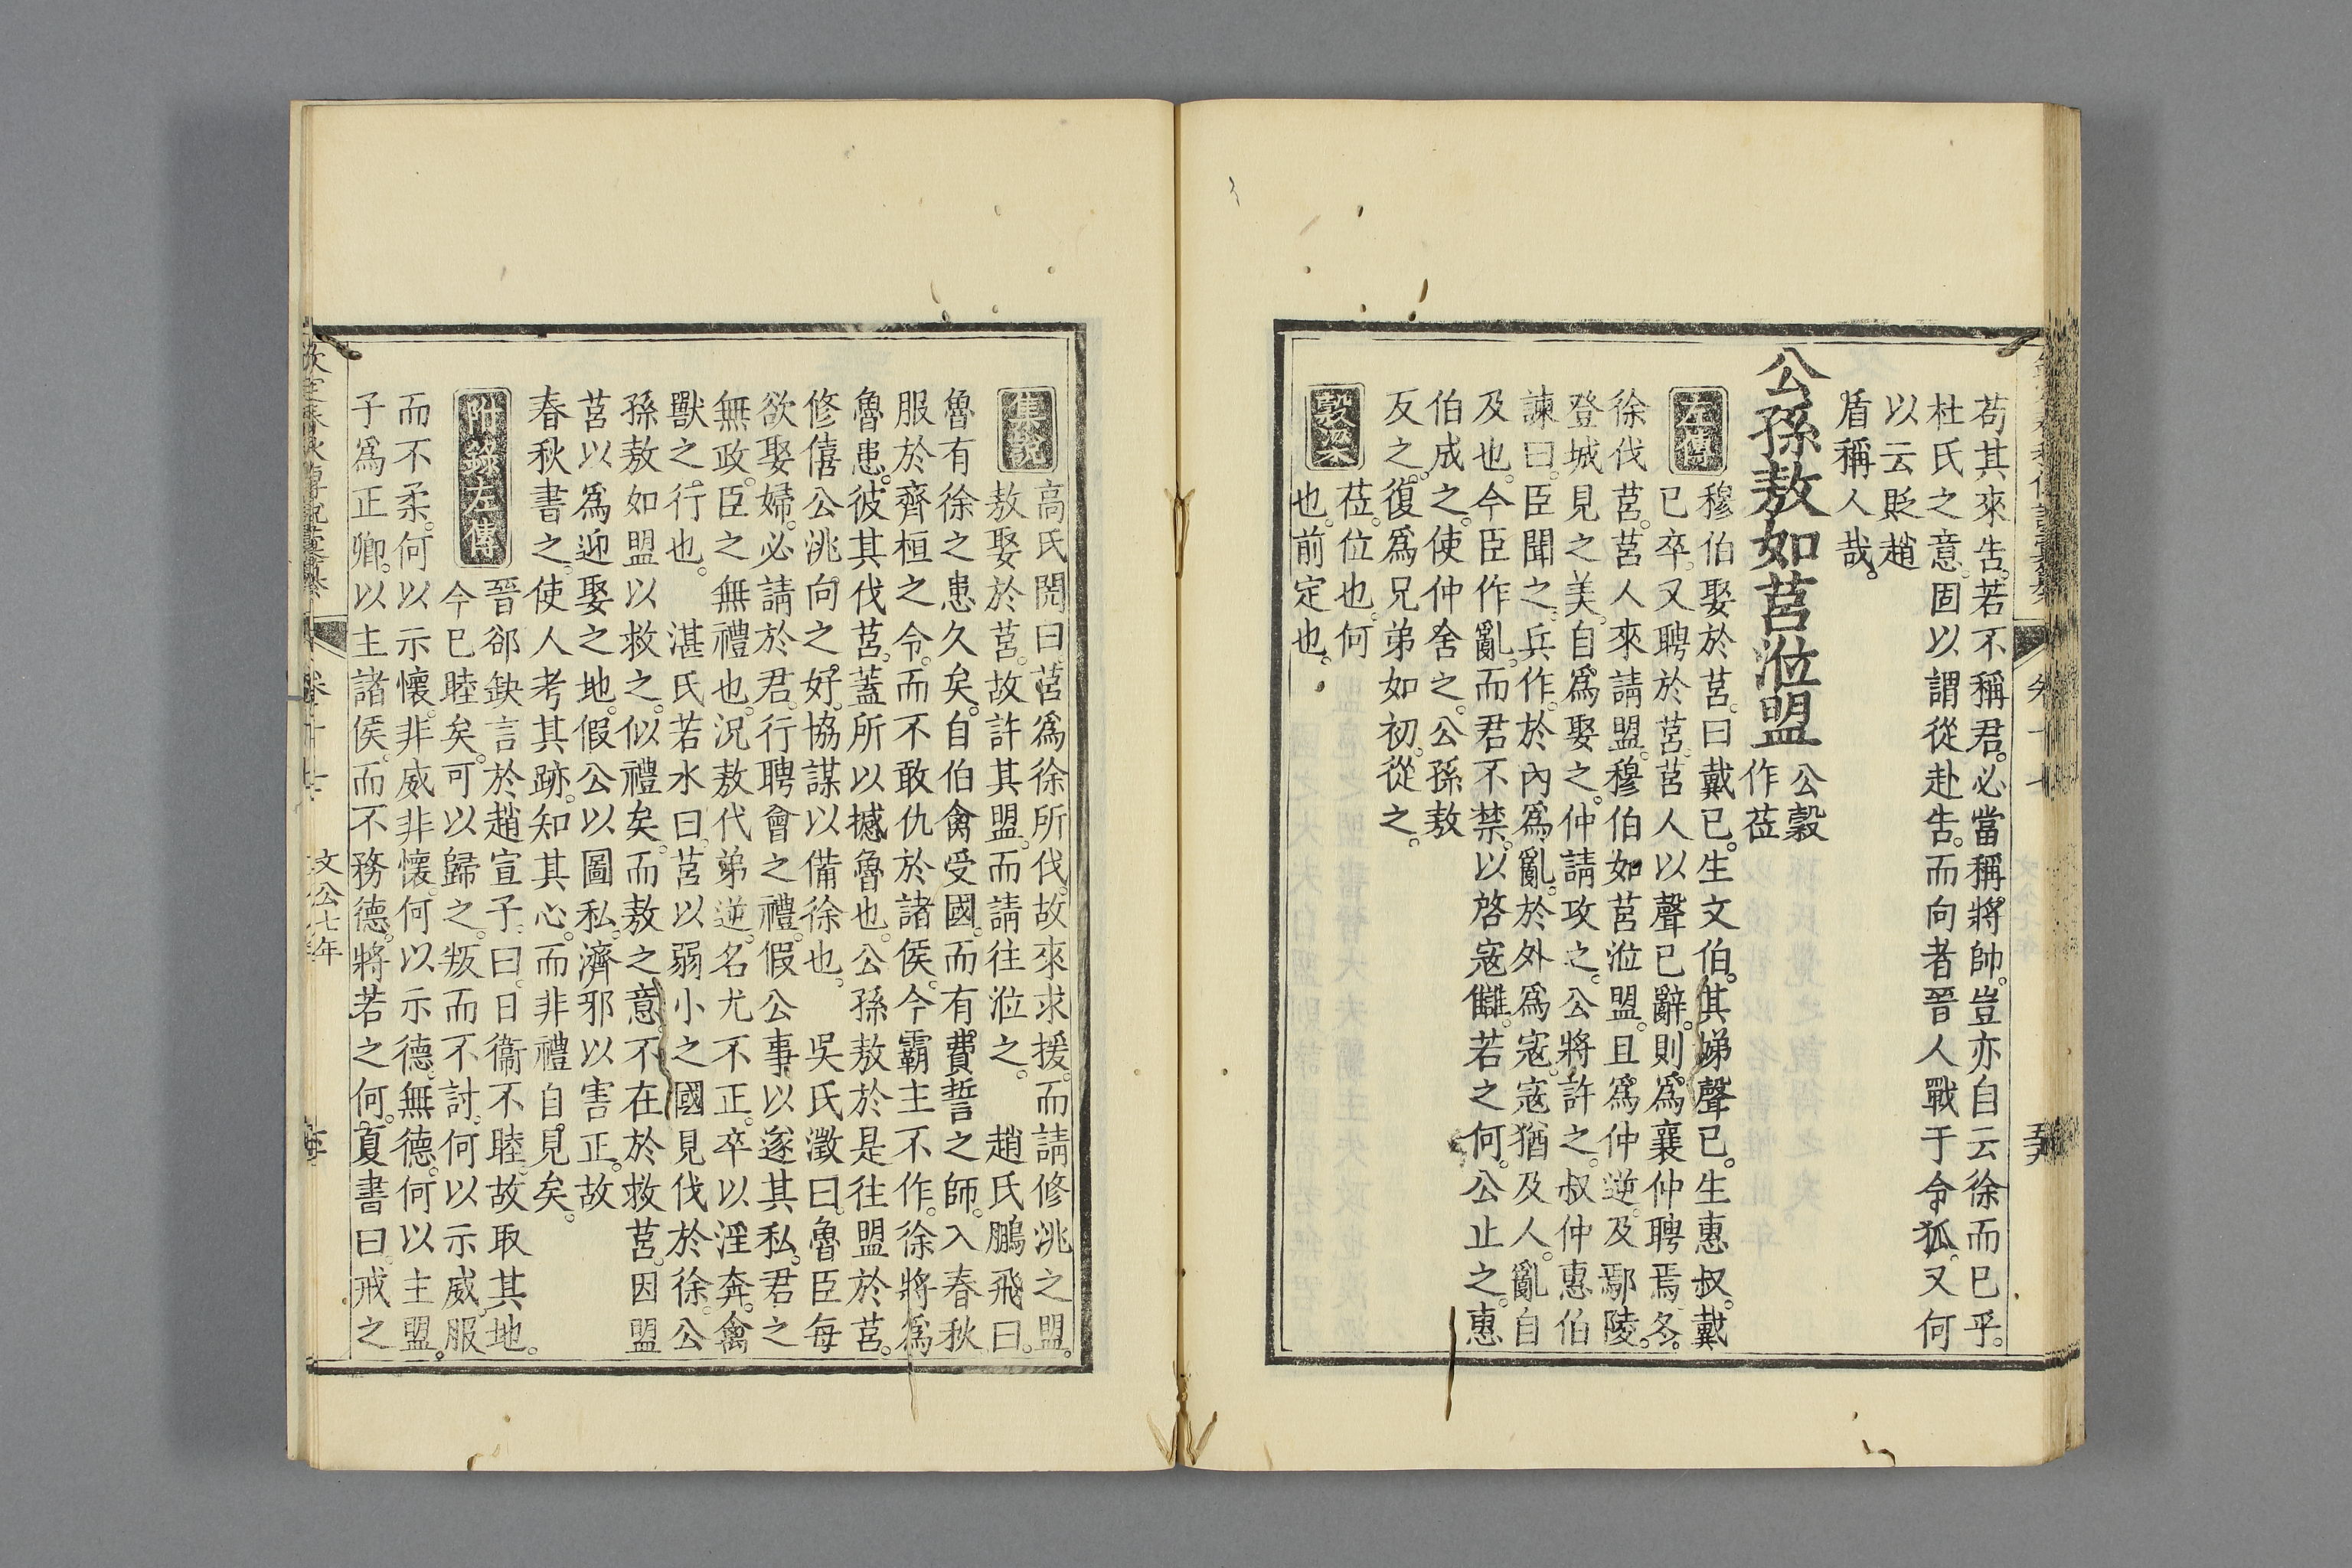 苟其來告。若不稱君。必當稱將帥。豈亦自云徐而已乎。
杜氏之意。固以謂從赴告。而向者晉人戰于令狐。又何
以云貶趙
盾稱人哉。
公孫敖如莒涖盟
公穀
作莅
左傳
穆伯娶於莒。曰戴己。生文伯。其娣聲己。生惠叔。戴
己卒。又聘於莒。莒人以聲己辭。則爲襄仲聘焉。冬。
徐伐莒。莒人來請盟。穆伯如莒涖盟。且爲仲逆。及鄢陵。
登城見之美。自爲娶之。仲請攻之。公將許之。叔仲惠伯
諫曰。臣聞之。兵作於內爲亂。於外爲寇。寇猶及人。亂自
及也。今臣作亂。而君不禁。以啓寇讎。若之何。公止之。惠
伯成之。使仲舍之。公孫敖
反之。復爲兄弟如初。從之。
穀梁
莅。位也。何
也。前定也。
集說
高氏閌曰莒爲徐所伐。故來求援。而請修洮之盟。
敖娶於莒。故許其盟。而請往涖之。　趙氏鵬飛曰。
魯有徐之患久矣。自伯禽受國。而有費誓之師。入春秋
服於齊桓之令。而不敢仇於諸侯。今霸主不作。徐將爲
魯患。彼其伐莒。蓋所以撼魯也。公孫敖於是往盟於莒。
修僖公洮向之好。協謀以備徐也。　吳氏澂曰。魯臣每
欲娶婦。必請於君。行聘會之禮。假公事以遂其私。君之
無政。臣之無禮也。況敖代弟逆。名尤不正。卒以淫奔。禽
獸之行也。　湛氏若水曰。莒以弱小之國見伐於徐。公
孫敖如盟以救之。似禮矣。而敖之意。不在於救莒。因盟
莒以爲迎娶之地。假公以圖私。濟邪以害正。故
春秋書之。使人考其跡。知其心。而非禮自見矣。
附錄左傳
晉郤缺言於趙宣子。曰。日衞不睦。故取其地。
今已睦矣。可以歸之。叛而不討。何以示威。服
而不柔。何以示懷。非威非懷。何以示德。無德。何以主盟。
子爲正卿。以主諸侯。而不務德。將若之何。夏書曰。戒之
欽定春秋傳說彙纂
卷十七
文公七年